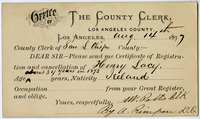 Office of THE COUNTY CLERK,
LOS ANGELES COUNTY.
LOS ANGELES, Aug 1877
County Clerk of San L Obispo County:
DEAR SIR—Please send me Certificate of Registra-
tion and cancellation of Henry Lacy,
about 34 years in 1873
Age, Nativity Ireland
Occupation from your Great Register,
and oblige. Yours, respectfully,